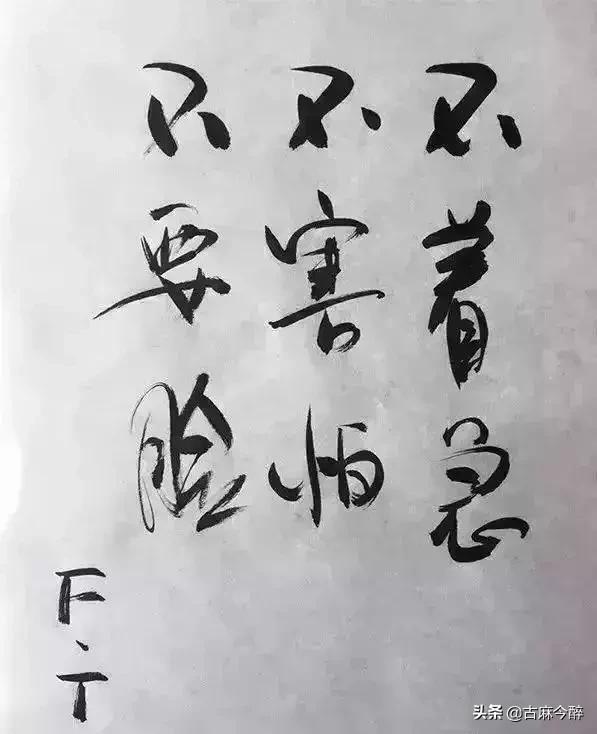 不着急
不害怕
不要脸
F.T
头条 @古麻今醉